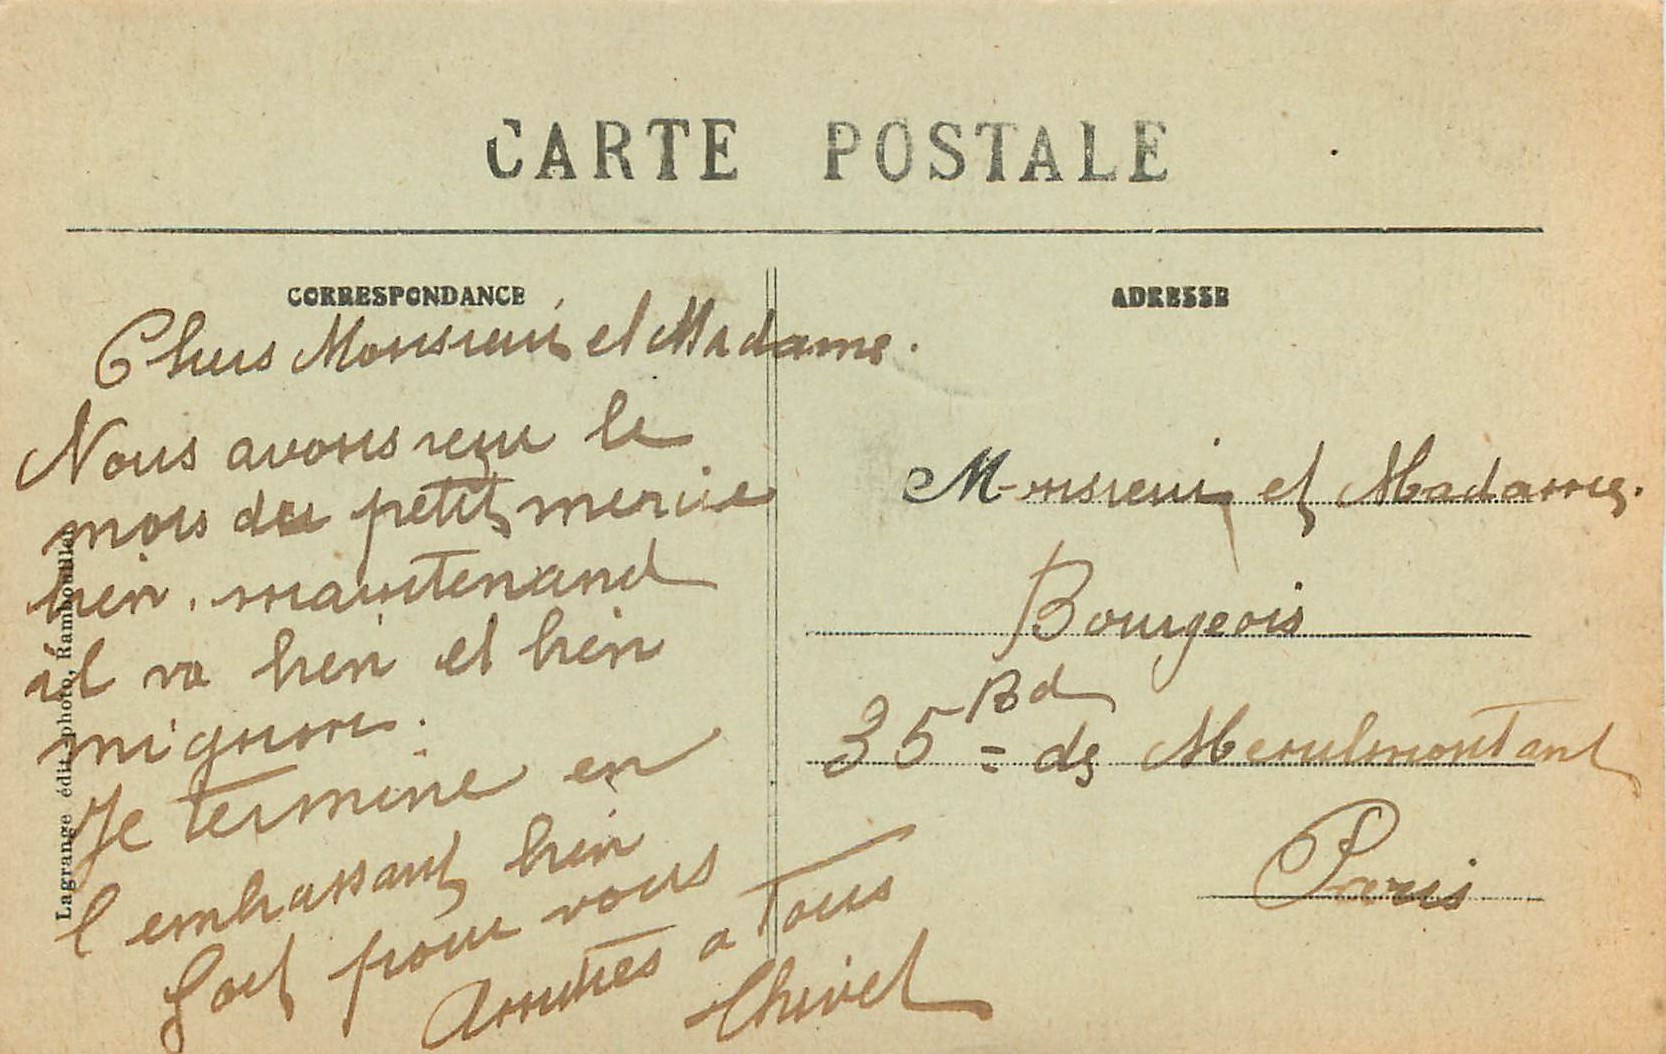 CARTE POSTALE
CORRESPONDANCE
ADRESSE
Chers Monsieur et Madame.
Nous avons reçu le
mois du petit mercie
bien. maintenand
il va bien et bien
mignon.
Je termine en
l'embrassant bien
fort pour vous
Amitiés a tous
Chivet
Monsieur et Madame.
Bourgeois
35 Bd de Menilmontant
Paris
Lagrange édit. photo, Rambouillet